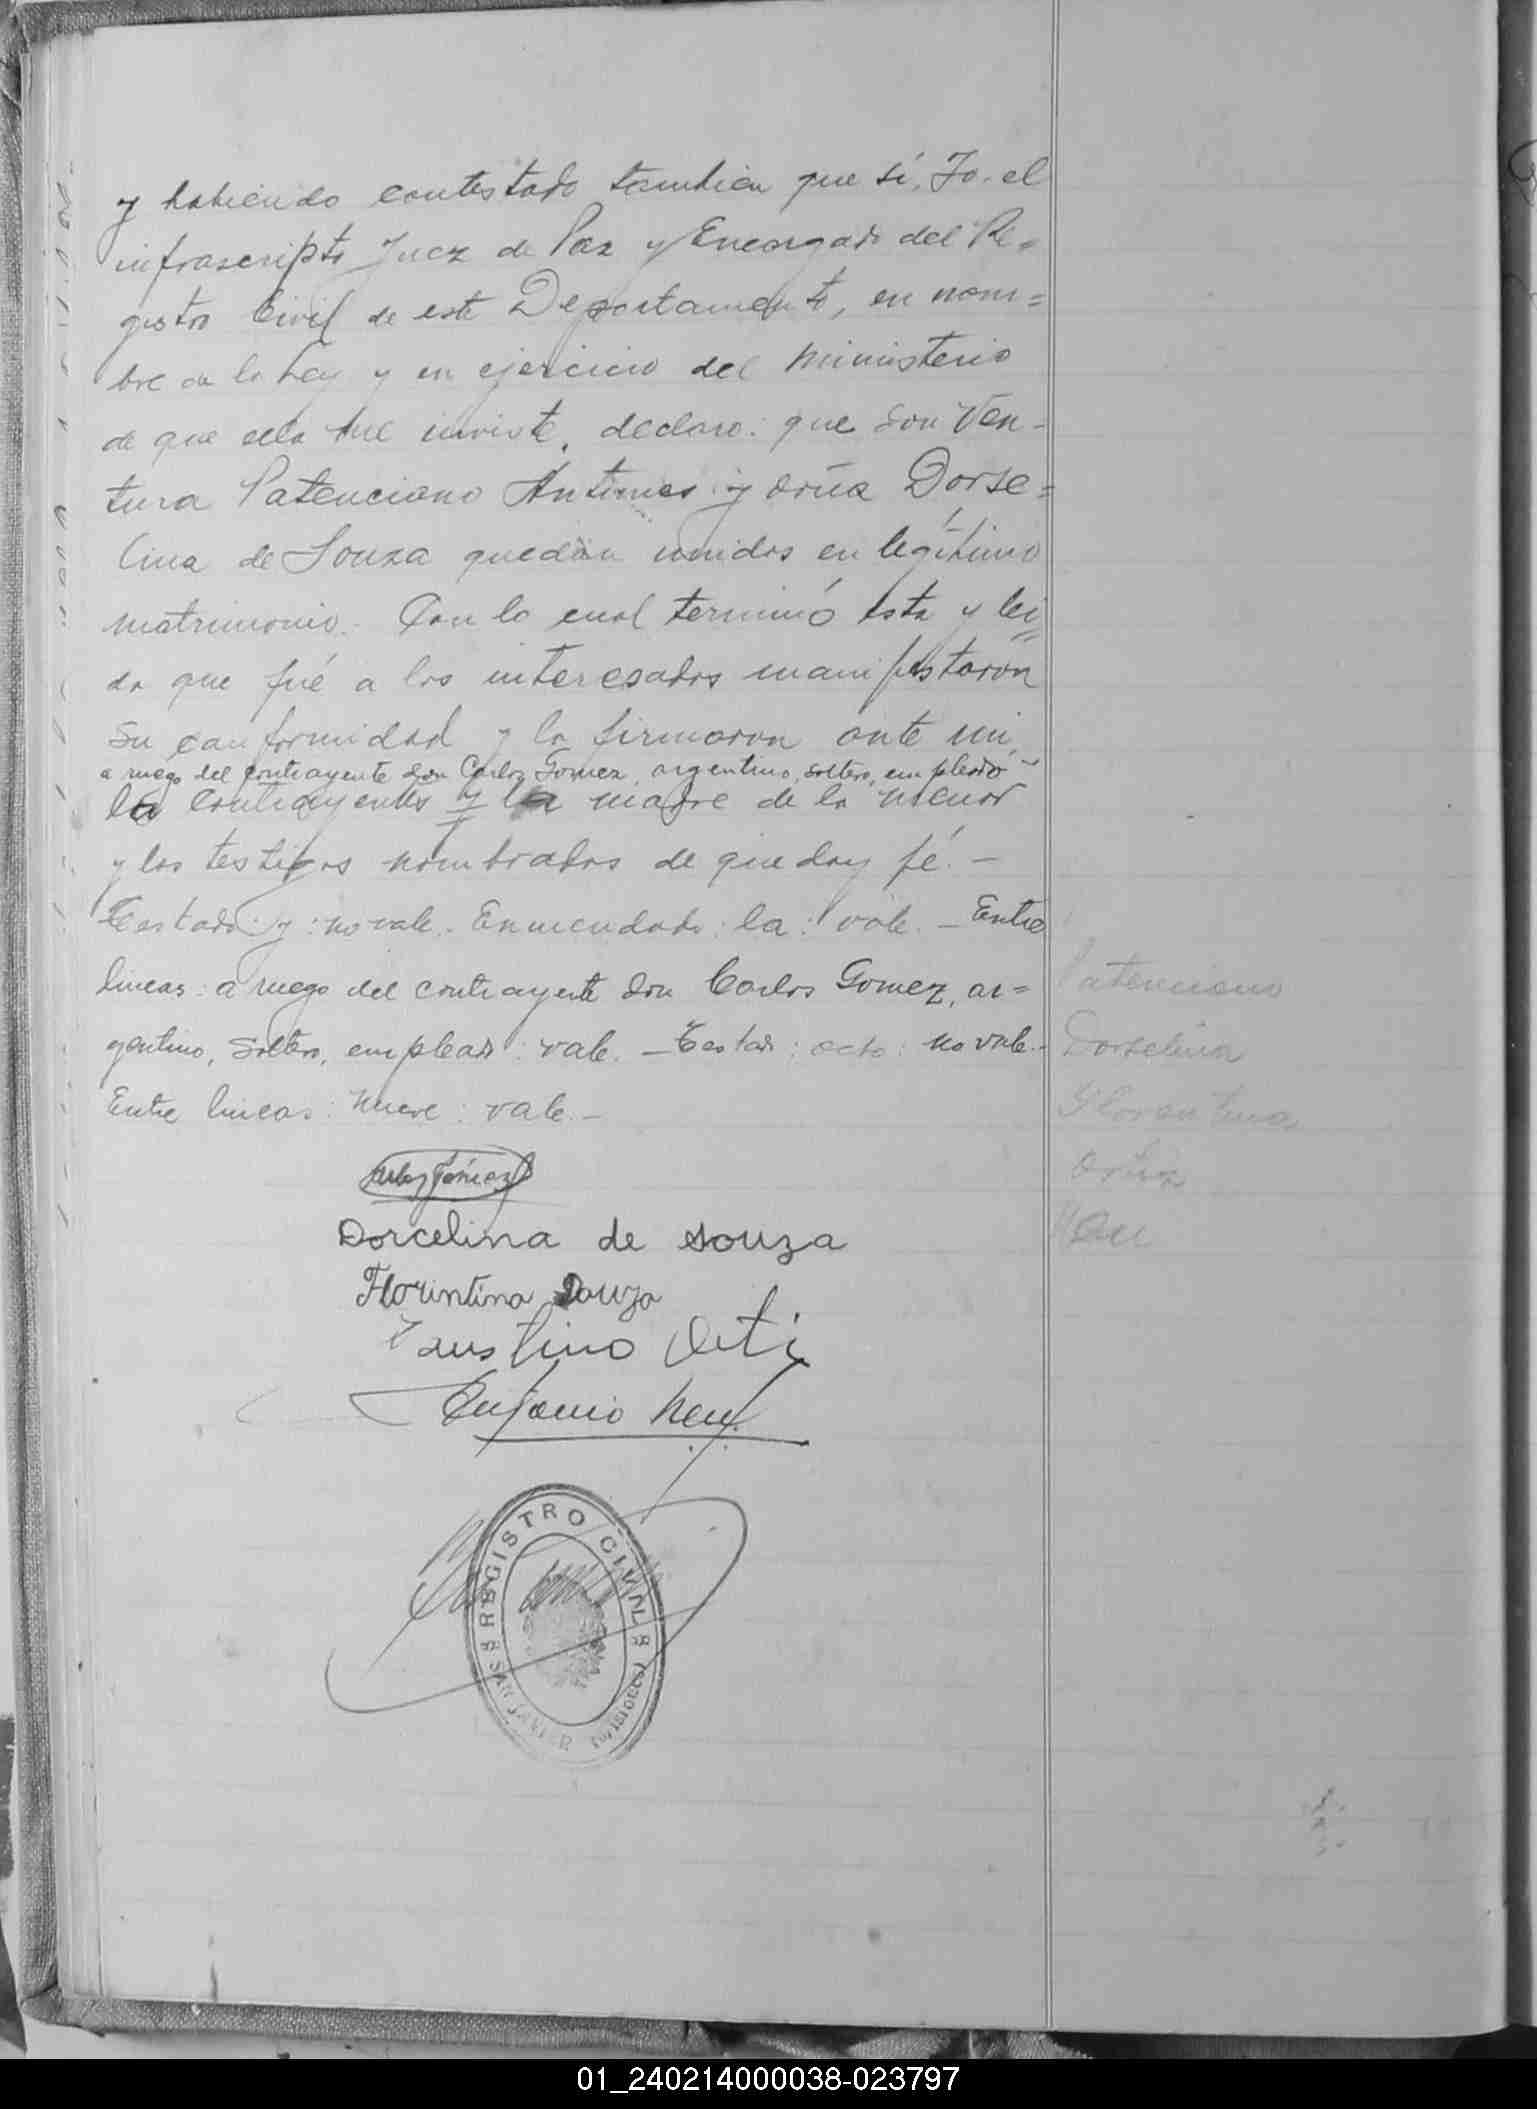 y habiendo contestado tambien que sí, Yo. el
infrascripto Juez de Paz y Encargado del Re=
gistro Civil de este Departamento, en nom=
bre de la Ley y en ejercicio del ministerio
de que ella me inviste, declaro: que don Ven-
tura Patenciano Antunes y doña Dorse=
lina de Souza quedan unidos en legítimo
matrimonio. Con lo cual terminó esta y leí=
da que fué a los interesados manifestaron
su conformidad y la firmaron ante mi,
a ruego del contrayente don Carlos Gomez, argentino, soltero, empleado
la contrayentes y la madre de la menor
y los testigos nombrados de que doy fé. -
Testado: y: no vale. Enmendado: la: vale. - Entre
lineas: a ruego del contrayente don Carlos Gomez, ar=
gentino, soltero, empleado: vale. - Testado: octo: no vale.-
Entre lineas: nueve: vale. -
Gómez
Dorcelina de souza
Florintina Souza
Faustino Orti
Neu
REGISTRO CIVIL
SAN JAVIER (MISIONES)
Patenciano
Dorselina
Florentina
Ortiz
Neu
01_240214000038-023797